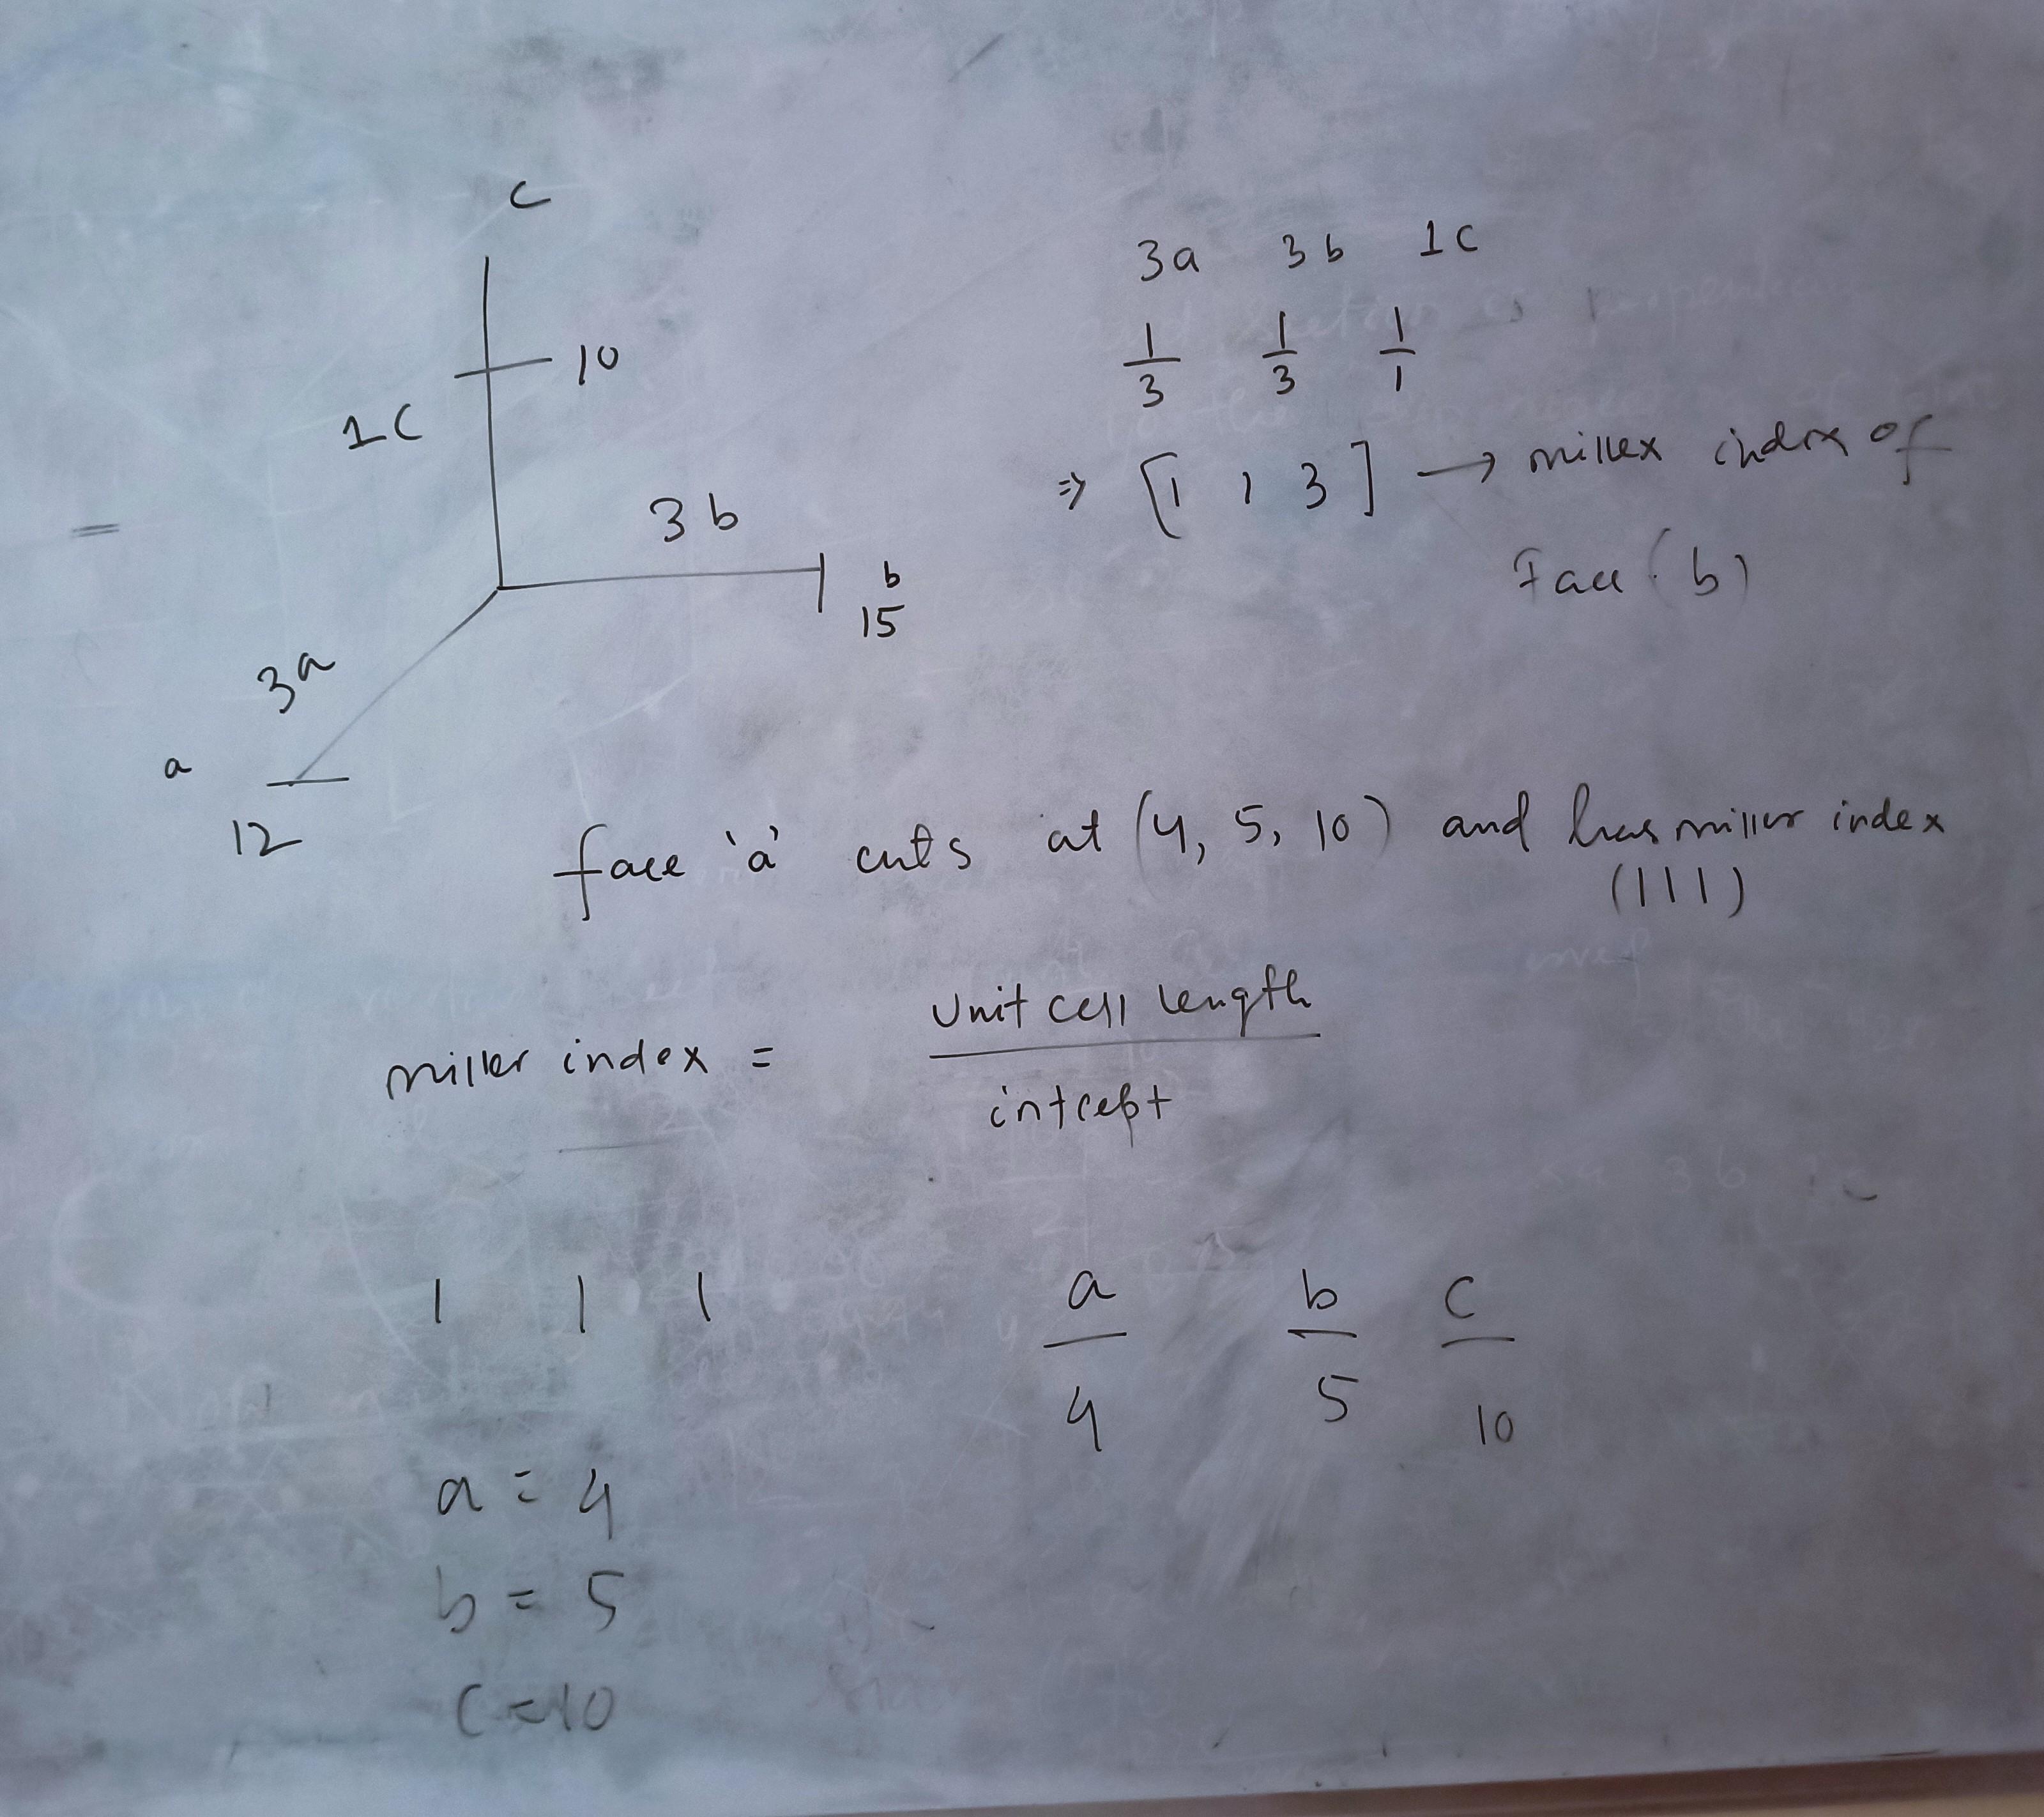 c
10
1c
3b
b
15
3a
a
12
3a 3b 1c
1/3 1/3 1/1
⇒ [1 1 3] → miller index of
Face (b)
face 'a' cuts at (4, 5, 10) and has miller index
(111)
miller index = Unit cell length
intcept
1 1 1
a b c
4 5 10
a = 4
b = 5
c = 10